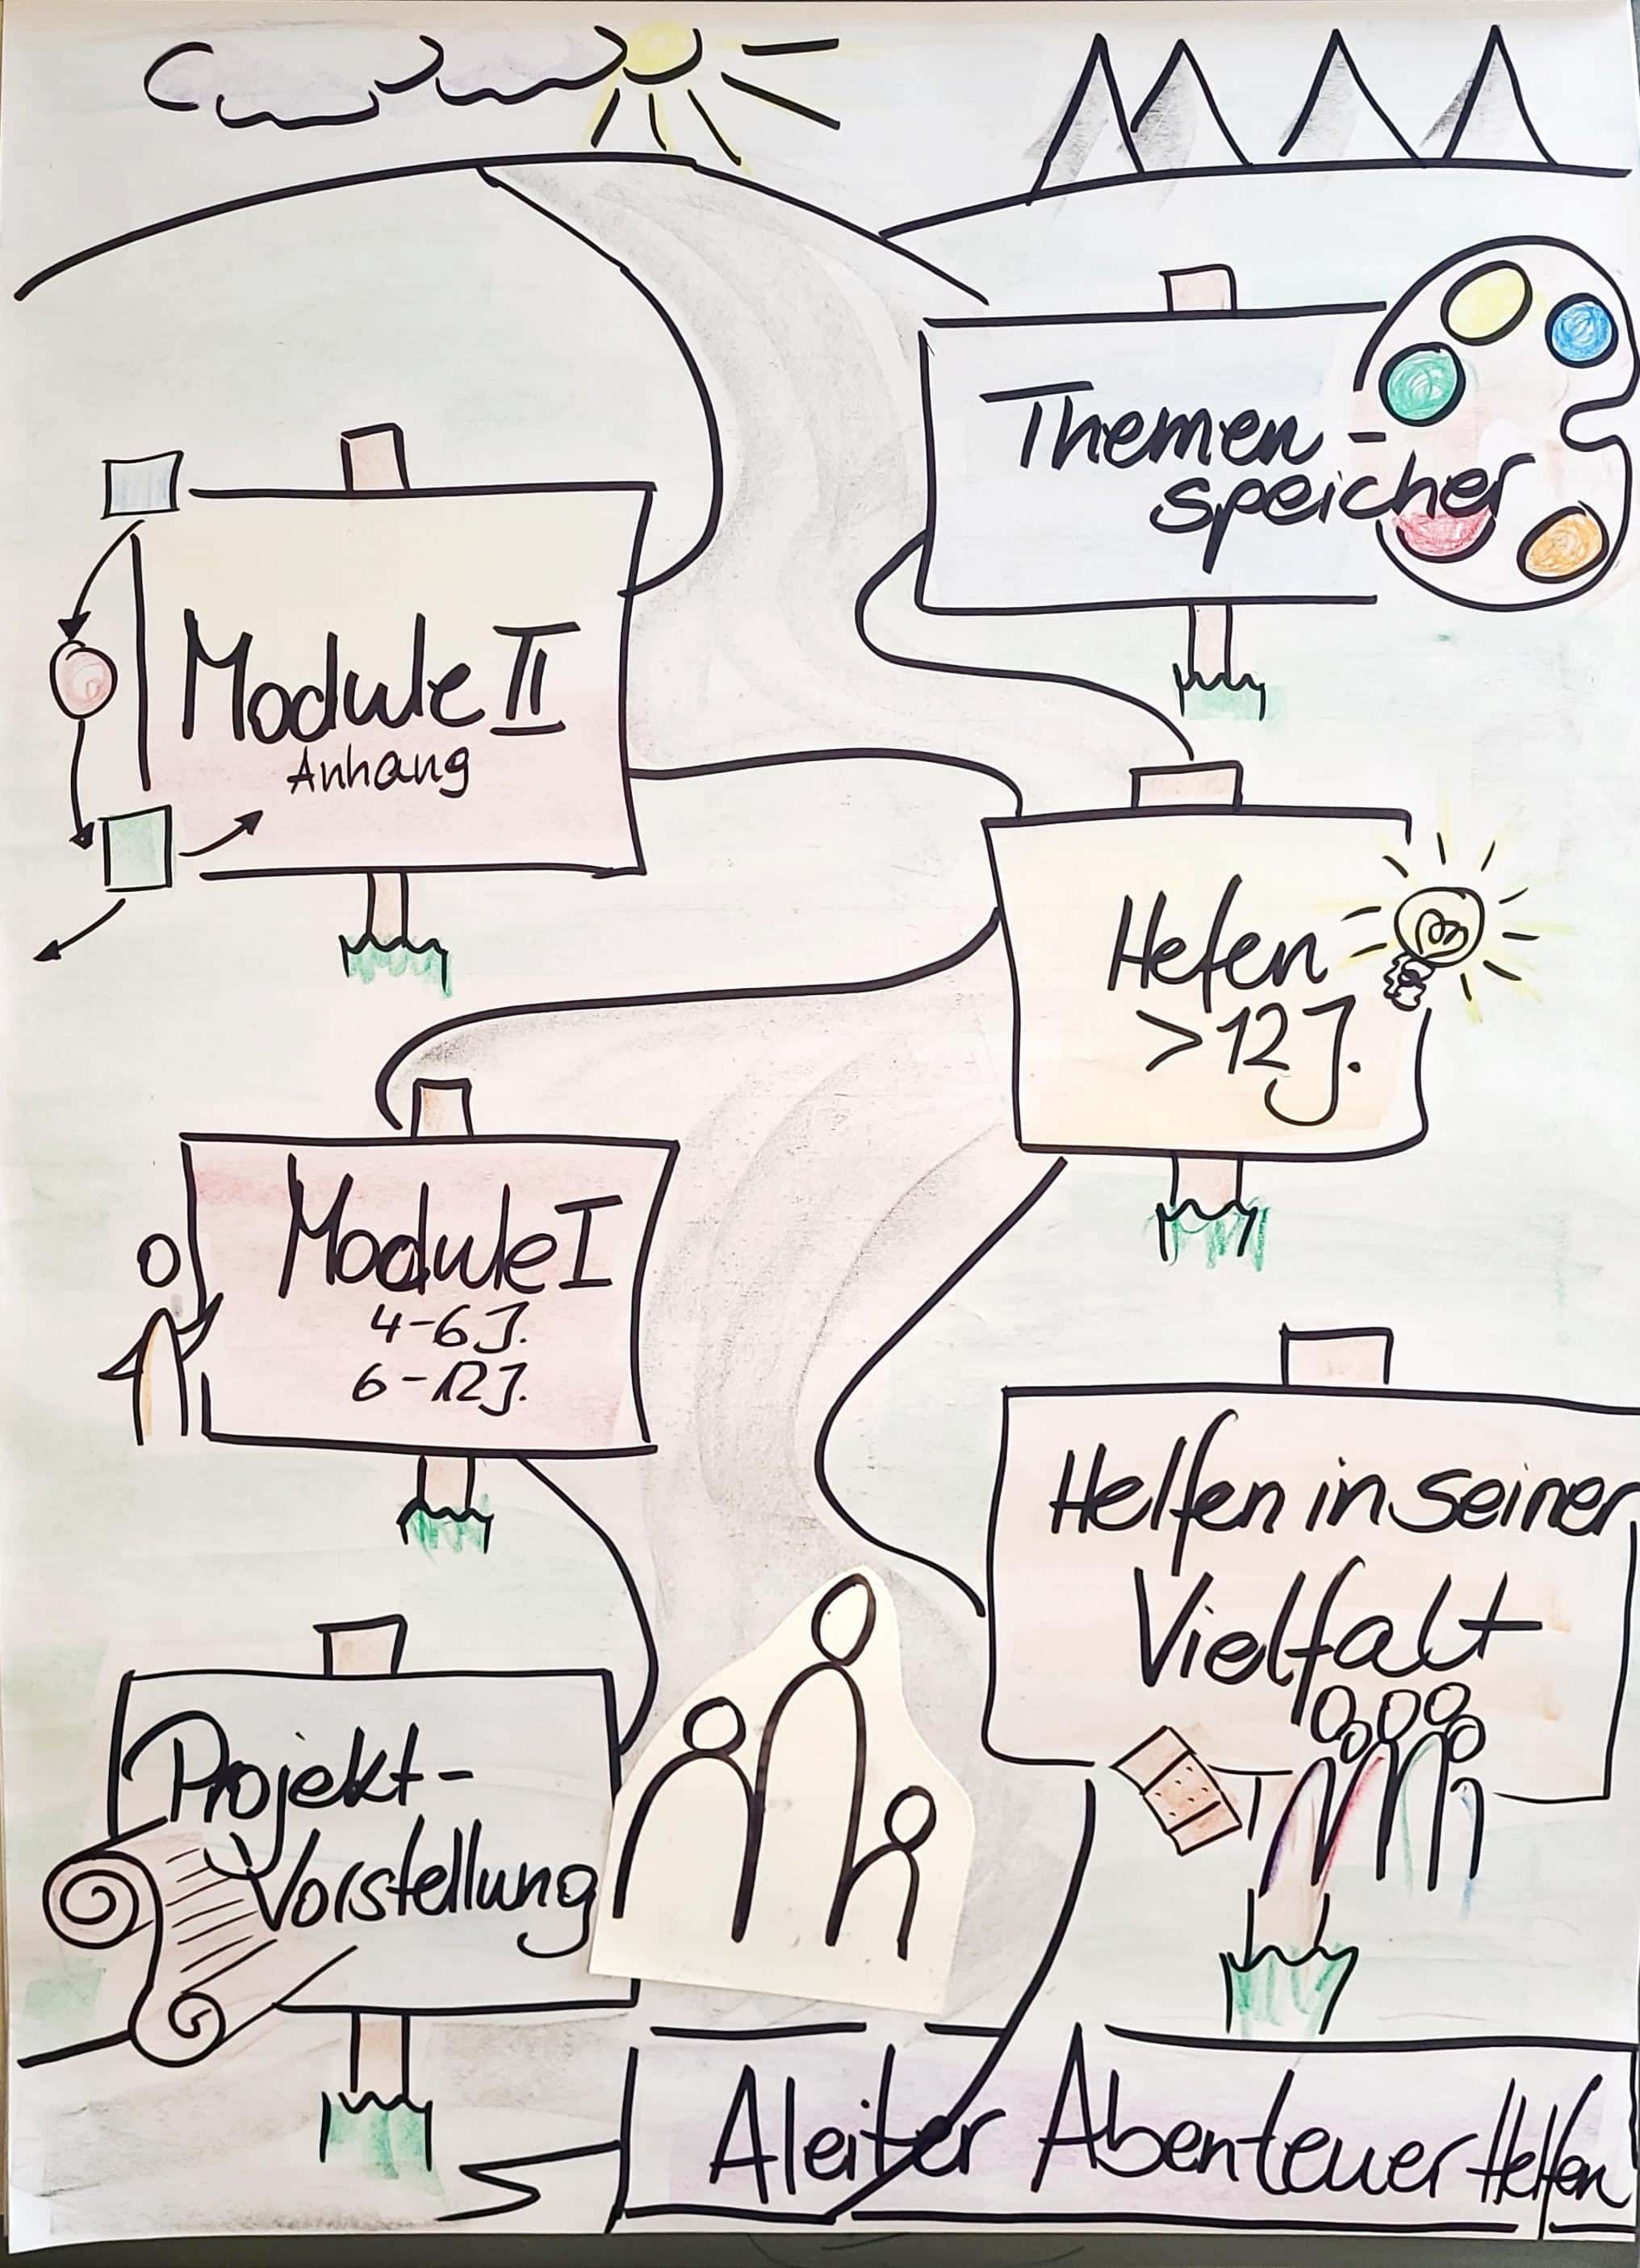 Themen-
speicher
Module II
Anhang
Hefen
>12 J.
Module I
4-6 J.
6-12 J.
Helfen in seiner
Vielfalt
Projekt-
Vorstellung
Aleiter Abenteuer Helfen